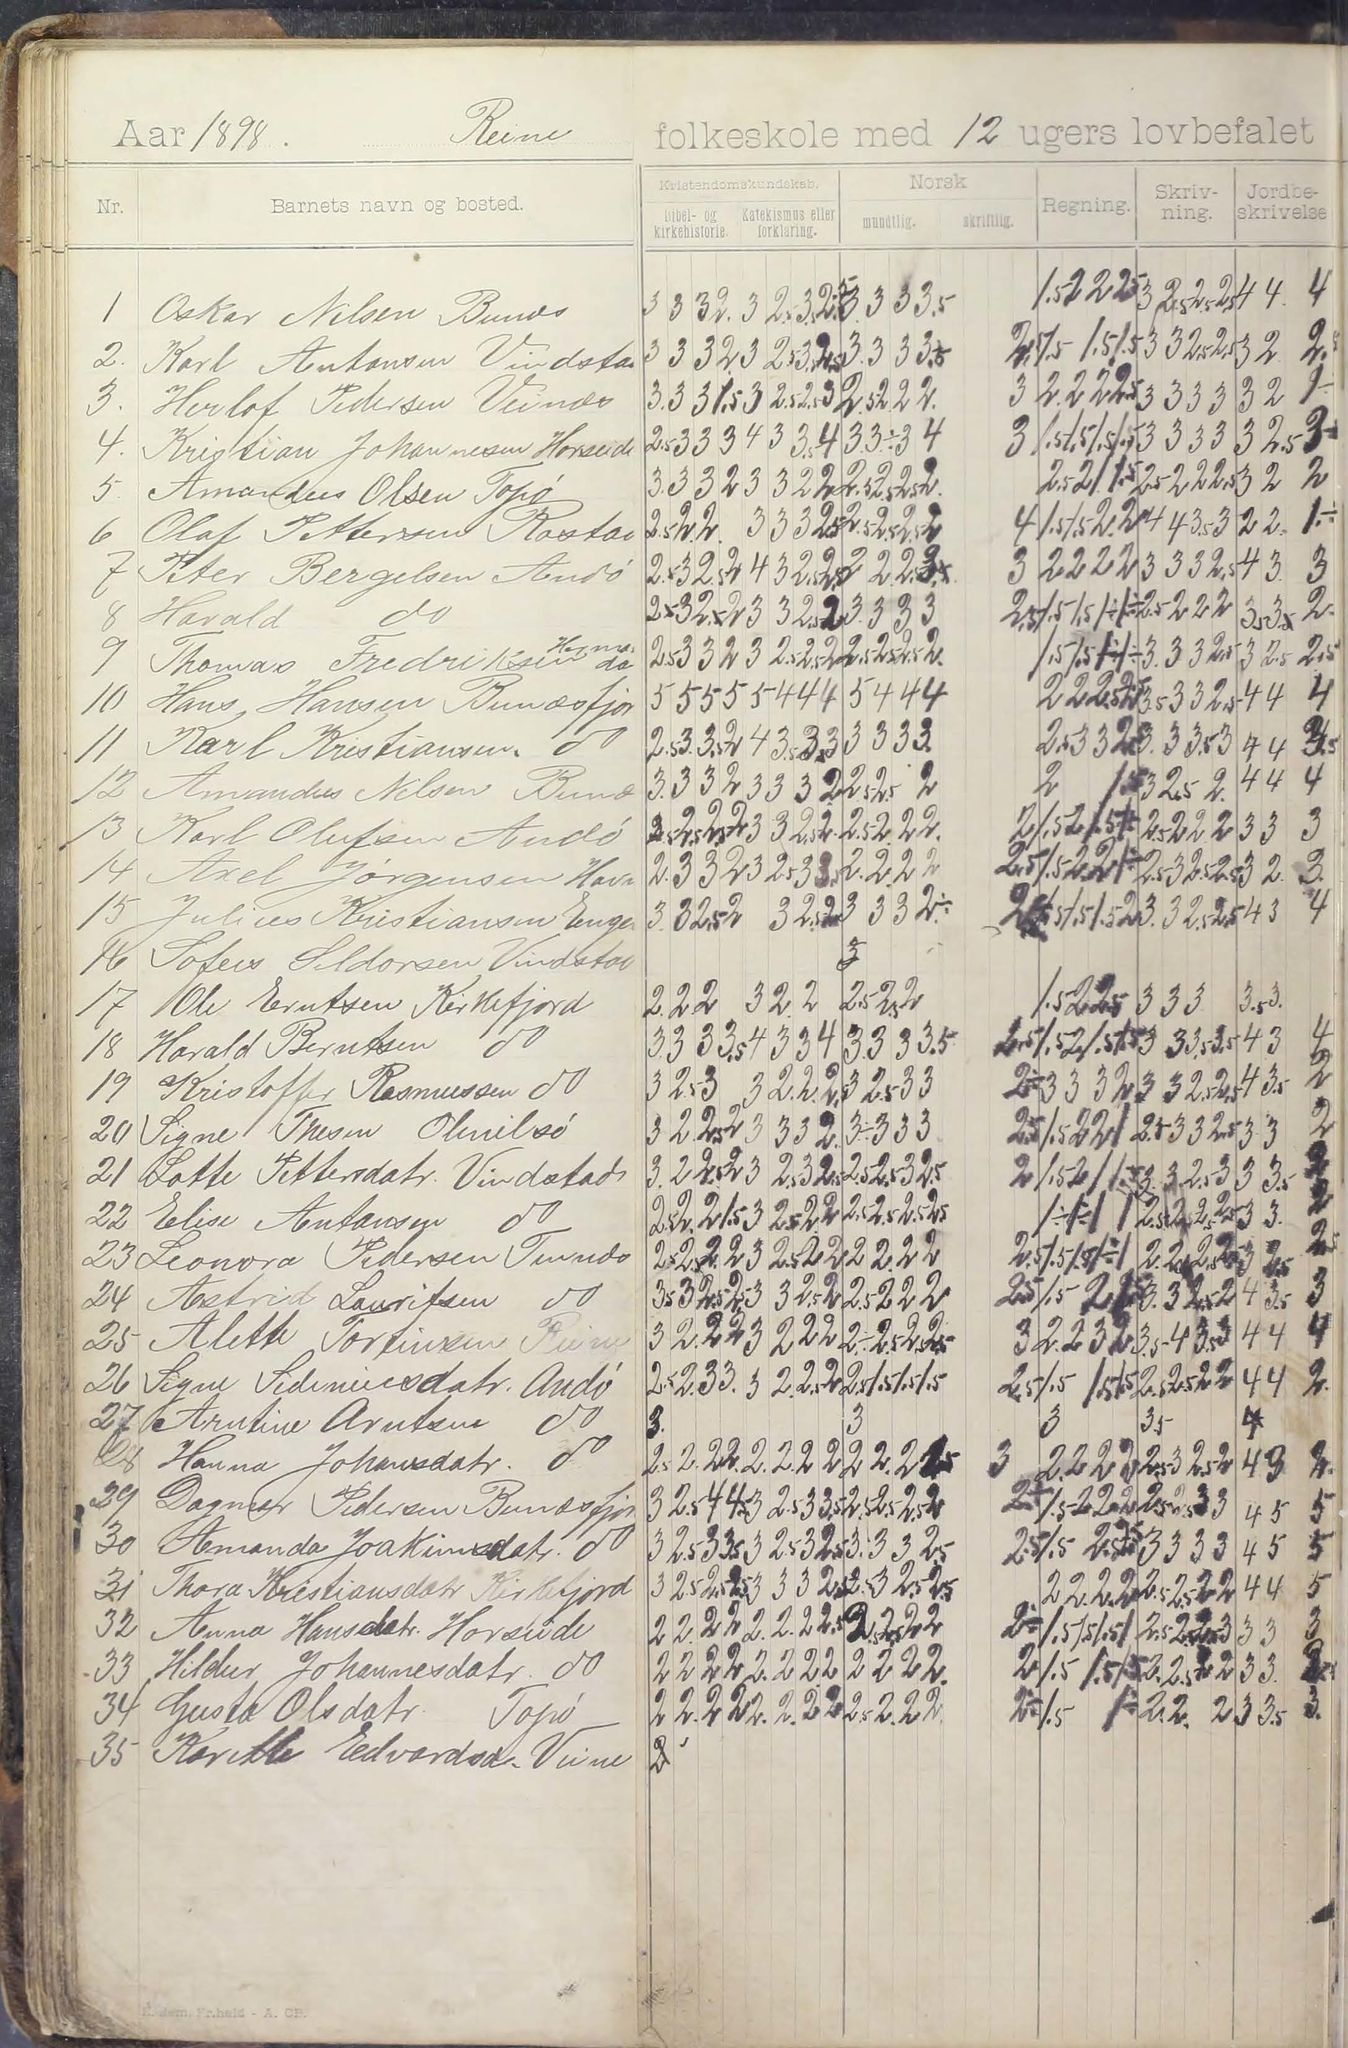 Aar 1898. Reine folkeskole med 12 ugers lovbefalet
Nr. Barnets navn og bosted. Kristendomskundskab. Norsk Regning. Skriv- Jordbe-
Bibel- og Katekismus eller mundtlig. skriftlig. ning. skrivelse
kirkehistorie. forklaring.
1 Oskar Nilsen Bunes 3 3 3 2. 3 2.5 3 3 3 3.5 1.5 2 2 2.5 3 2.5 2.5 2.5 4 4. 4
2. Karl Antonsen Vindstad 3 3 3 2 3 2.5 3. 3 3 3.5 3 3 2.5 2.5 3 2 2.
3. Herlof Pedersen Veines 3. 3 3 1.5 3 2.5 2.5 3 2.5 2 2 2. 3 2. 2 2 2.5 3 3 3 3 3 2 1
4. Kristian Johannesen Horseide 2.5 3 3 3 4 3 3.5 4 3 3÷ 3 4 3 1.5 1.5 1.5 1.5 3 3 3 3 3 2.5 3
5. Amandus Olsen Topö 3. 3 3 2 3 3 2 2 2.5 2.5 2.5 2. 2.5 2 1 1.5 2.5 2 2 2.5 3 2 2
6 Olaf Pettersen Rostad 2.5 2 2. 3 3 3 2.5 2.5 2.5 2.5 2 4 1.5 1.5 2. 2 4 4 3.5 3 2 2. 1.÷
7 Peter Bergelsen Andö 2.5 3 2.5 2 4 3 2.5 2.5 2 2 2.5 3 2 2 2 2 3 3 3 2.5 4 3. 3
8 Harald do 2.5 3 2.5 2 3 3 2.5 2 3. 3 3 3 2.5 1.5 1.5 1÷ 1÷ 2.5 2 2 2 3.5 3. 2.
9 Thomas Fredriksen do 2.5 3 3 2 3 2.5 2.5 2 2.5 2.5 2.5 2. 1.5 1.5 1÷ 1÷ 3. 3 3 2.5 3 2.5 2.5
10 Hans Hansen Bunesfjor 5 5 5 5 5 4 4 4 5 4 4 4 2 2 2.5 2.5 3.5 3 3 2.5 4 4 4
11 Karl Kristiansen. do 2.5 3. 3.5 2 4 3.5 3.5 3 3 3 3 3. 2.5 3 3 2 3. 3 3.5 3 4 4
12 Amandus Nilsen Bunes 3. 3 3 2 3 3 3 2 2.5 2.5 2 2 1.5 3 2.5 2. 4 4 4
13 Karl Olufsen Andö 2.5 2.5 2 3 3 2.5 2. 2.5 2. 2 2. 2 1.5 2 1.5 1÷ 2.5 2 2 2 3 3 3
14 Axel Jörgensen Havn 2. 3 3 2 3 2.5 3 3.5 2. 2. 2 2 2.5 1.5 2. 2 1÷ 2.5 3 2.5 2.5 3 2. 3.
15 Julius Kristiansen Enge 3. 3 2.5 2 3 2.5 2 3 3 3 2÷ 1.5 1.5 1.5 2 3. 3 2.5 2.5 4 3 4
16 Sofus Vindstad 3
17 Ole Erntsen Kirkefjord 2. 2 2 3 2. 2 2.5 2.5 2 1.5 2 2.5 3 3 3 3.5 3.
18 Harald Berntsen do 3. 3 3 3.5 4 3 3 4 3. 3 3 3.5 1.5 2 1.5 1.5 3 3 3.5 3.5 4 3 4
19 Kristoffer Rasmussen do 3 2.5 3 3 2. 2. 2.5 3 2.5 3 3 2÷ 3 3 3 2 3 3 2.5 2.5 4 3.5 2
20 Signe Thesen Olenilsö 3 2 2.5 2 3 3 3 2. 3÷ 3 3 3 2.5 1.5 2 2 1 2.5 3 3 2.5 3 3 2
21 Lotte Pettersdatr. Vindstad 3. 2 2.5 2 3 2.5 3 2.5 2.5 2.5 3 2.5 2 1.5 2 1 1.5 3. 3. 2.5 3 3 3.5 2
22 Elise Antonsen do 2.5 2. 2 1.5 3 2.5 2 2 2.5 2.5 2.5 2.5 1÷ 1÷ 1 1 2.5 2.5 2.5 2.5 3 3. 2
23 Leonora Pedersen Tunnes 2.5 2.5 2. 2 3 2.5 2 2 2 2. 2 2 2.5 1.5 1.5 1÷ 1 2. 2. 2.5 2.5 3 2.5 2.5
24 Astrid Lauritsen do 3.5 3 2.5 2.5 3 3 2.5 2 2.5 2 2 2 2.5 1.5 2 1.5 3. 3 2.5 2 4 3.5 3
25 Alette Tortinsen Reine 3 2. 2 2 3 2 2 2 2÷ 2.5 2 2.5 3 2. 2 3 2 3.5 4 3.5 3 4 4 4
26 Signe Sideniusdatr. Andö 2.5 2. 3 3. 3 2. 2.5 2 2.5 1.5 1.5 1.5 2.5 1.5 1.5 1.5 2.5 2.5 2 2 4 4 2.
27 Arntine Arntsen do 3. 3 3 3.5 4
28 Hanna Johansdatr. do 2.5 2. 2 2. 2. 2 2 2 2 2. 2 1.5 3 2. 2 2 2 2.5 3 2.5 2 4 3 2.
29 Dagmar Pedersen Bunesfjor 3 2.5 4 4.5 3 2.5 3 3.5 2.5 2.5 2.5 2 2÷ 1.5 2 2 2 2.5 2.5 3 3 4 5 5
30 Amanda Joakimsdatr. do 3 2.5 3 3.5 3 2.5 3 2.5 3. 3 3 2.5 2.5 1.5 2.5 2.5 3 3 3 3 4 5 5
31 Thora Kristiansdatr Kirkefjord 3 2.5 2.5 2.5 3 3 3 2.5 2. 3 2.5 2.5 2 2. 2. 2 2.5 2.5 2 2 4 4. 5
32 Anna Hansdatr. Horseide 2 2. 2 2 2. 2. 2 2.5 2.5 2.5 2 2 2÷ 1.5 1.5 1.5 1 2.5 2. 2.5 3 3 3 3
33 Hildur Johannesdatr. do 2 2 2 2 2. 2. 2 2 2 2 2 2. 2 1.5 1.5 1.5 2. 2.5 2 2 3 3.
34 Gusta Olsdatr. Topö 2 2. 2 2 2. 2. 2 2 2.5 2. 2 2. 2÷ 1.5 1÷ 2. 2. 2 3 3.5 3.
35 Edvardsd. Veine 2